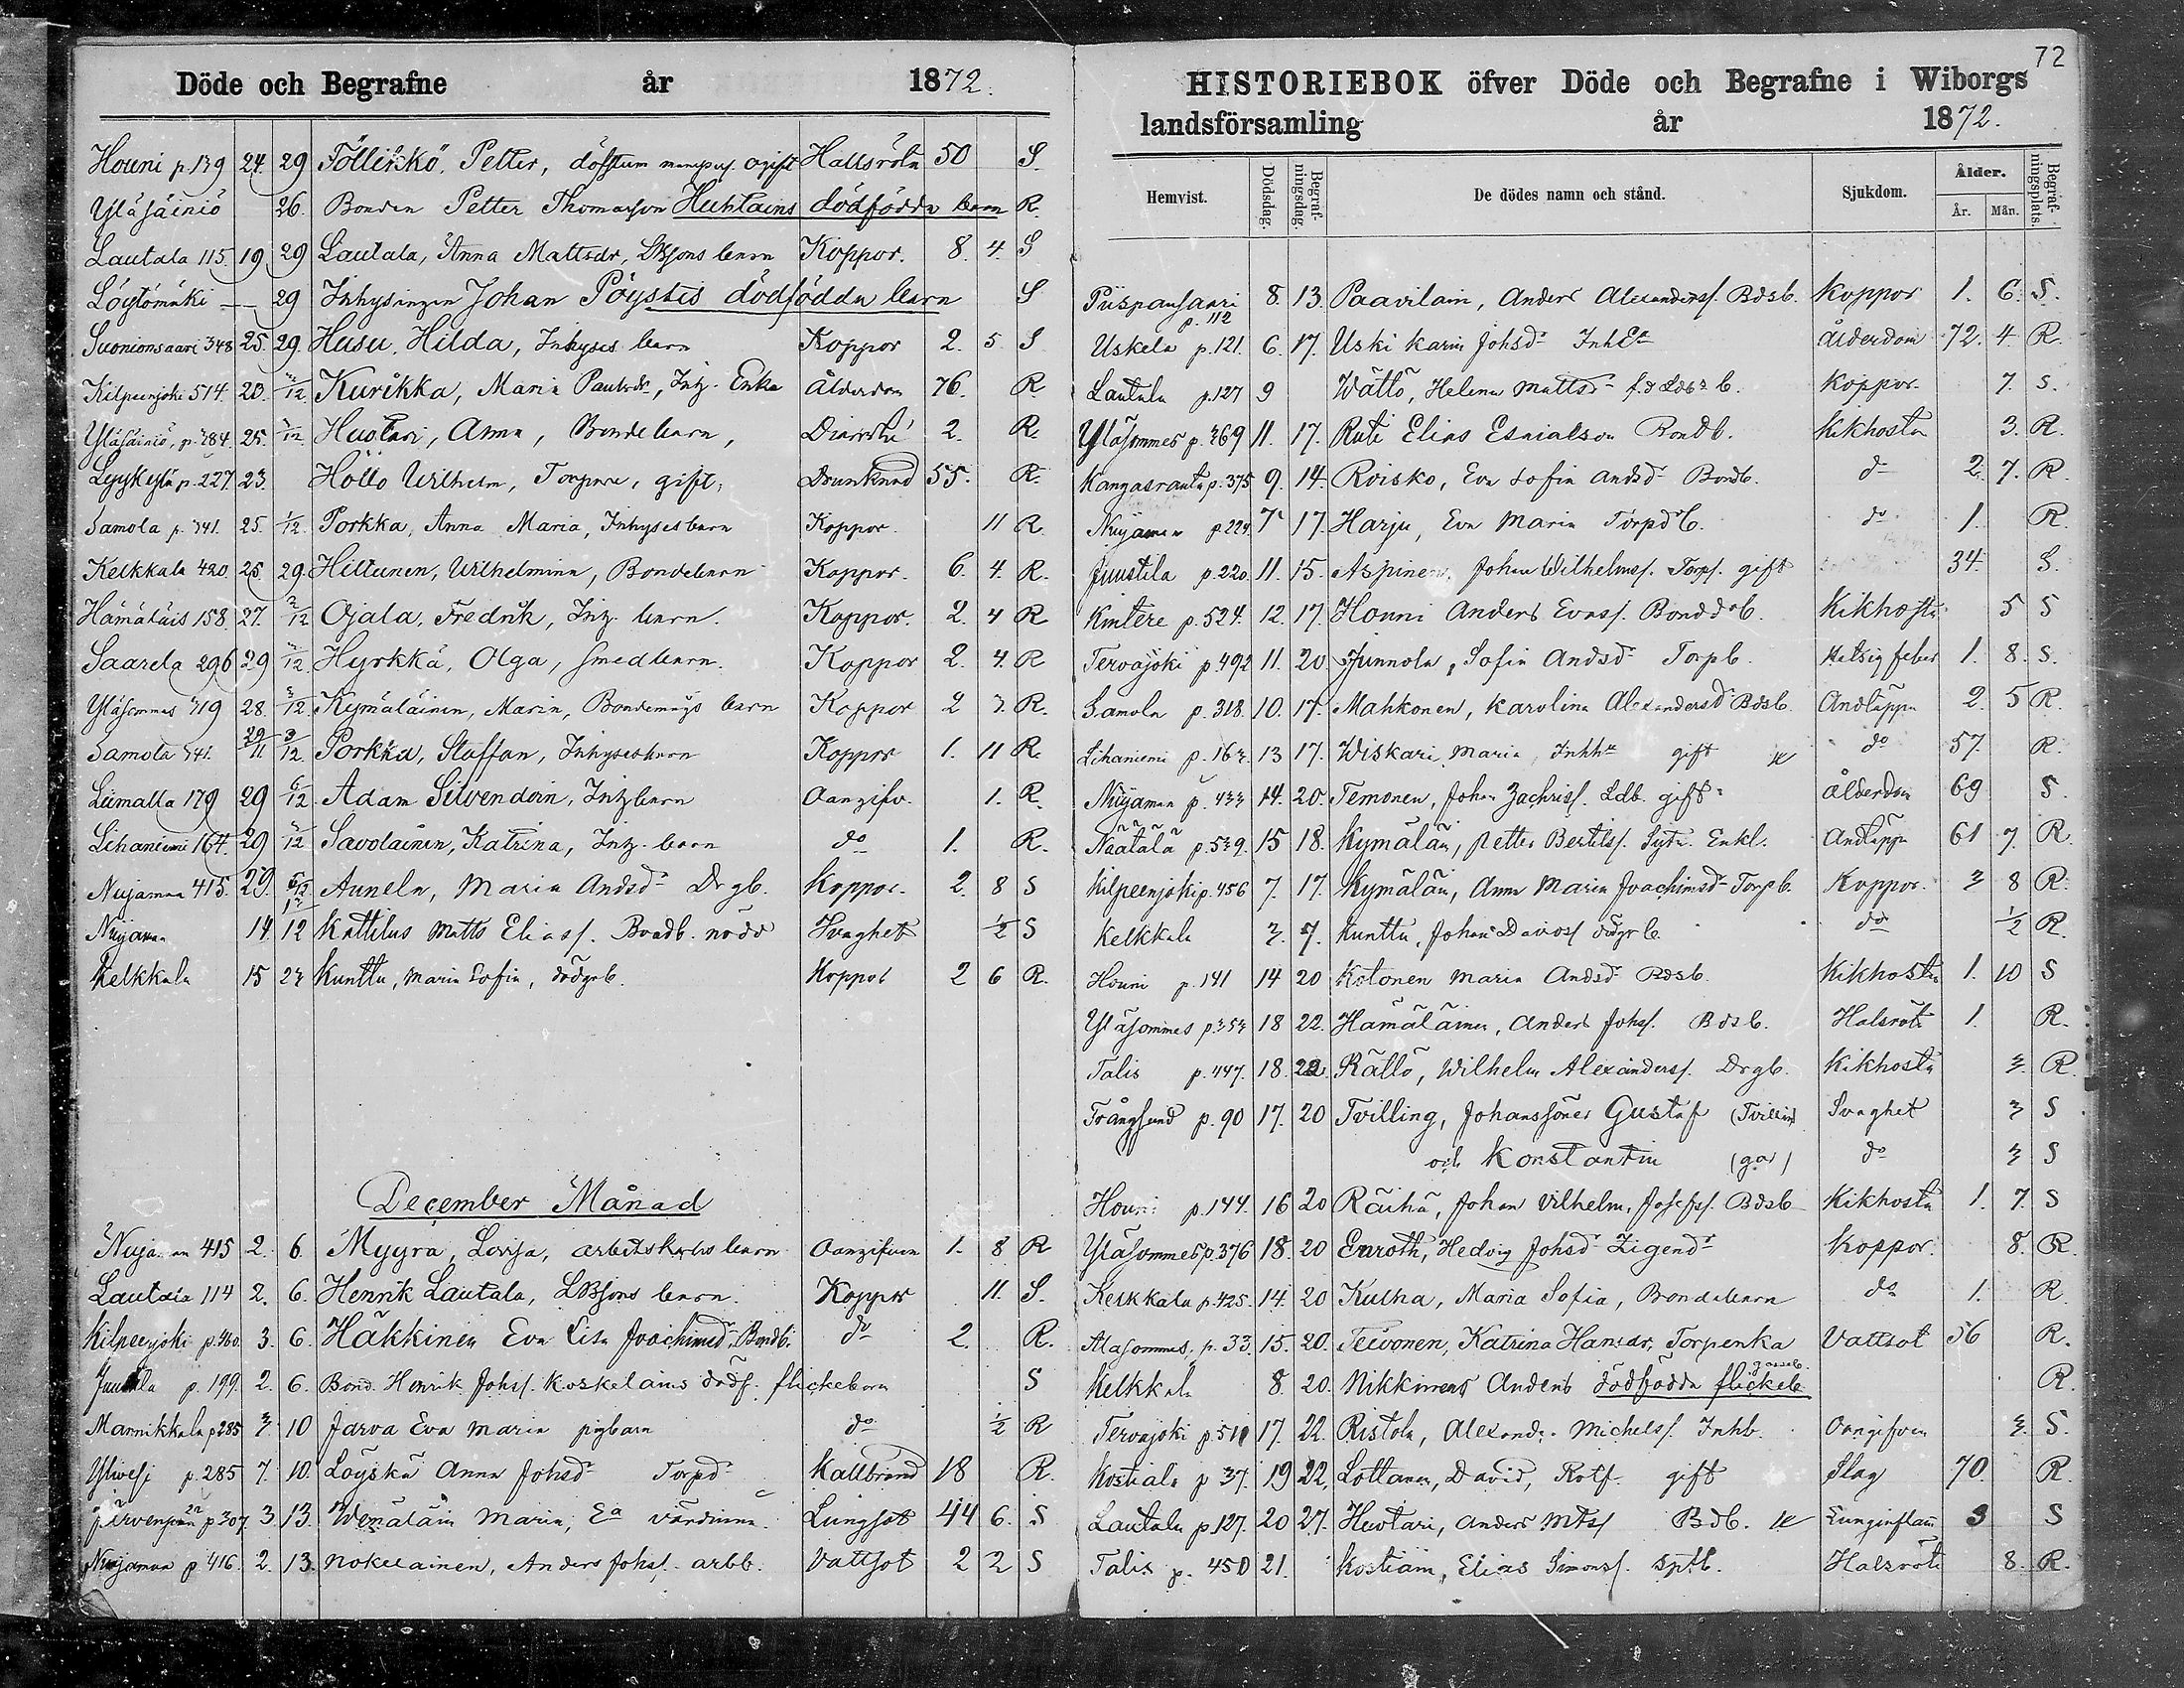 Döde och Begrafne år 1872.
Houni p.139 24. 29 Föllinkö, Petter, döfstum ogift Halsröta 50 S.
Yläsäiniö 26. Bonden Petter Thomasson Huhtains dödfödda barn R.
Lautala 115. 19 29 Lautala, Anna Mattsdr, barn Koppor. 8. 4. S
Löytömäki — 29 Inhysingen Johan Pöystis dödfödda barn S
Suonionsaari 348 25. 29. Husu, Hilda, Inhyses barn Koppor 2. 5 S
Kilpeenjoki 514. 20. /12. Kurikka, Maria Paulsdr, Inh. Enka Ålderdom 76. R
Yläsäiniö, p. 284. 25. /12 Huotari, Anna, Bondebarn, 2. R.
p. 227. 23. Höllö Wilhelm, Torpare, gift, Drunknad 55. R.
Samola p. 341. 25. 1/12 Porkka, Anna Maria, Inhysesbarn Koppor. 11 R.
Kelkkala 420. 25. 29. Hiltunen, Wilhelmina, Bondebarn Koppor. 6. 4. R.
Hämäläis 158. 27. 2/12 Ojala, Fredrik, Inh. barn. Koppor. 2. 4 R
Saarela 296 29 /12. Hyrkkä, Olga, smedbarn. Koppor 2. 4. R
Yläsommes 28. 3/12. Kymäläinen, Maria, Bondemågs barn Koppor 2 7. R.
Samola 341. 29/11. 3/12. Porkka, Staffan, Inhysesbarn Koppor 1. 11 R.
Liimatta 179 29 6/12. Adam Silvendoin, Inhbarn Oangifv. 1. R.
Lihaniemi 164. 29 /12 Savolainen, Katrina, Inh. barn do 1. R.
Nuijamaa 415. 29. /12 Aunela, Maria Andsdr Drgb. Koppor. 2. 8 S
Nuijamaa 14. 12 Kattilus Matts Eliass. Bondb. nöddr Svaghet ½ S
Kelkkala 15 Kunttu, Maria Sofia, Koppor 2 6 R.
December Månad
Nuijamaa 415 2. 6. Myyrä, Lovisa, arbetskarls barn Oangifven 1. 8 R
Lautala 114 2. 6. Henrik Lautala, barn. Koppor 11. S.
Kilpeenjoki p. 460. 3. 6. Häkkinen Eva Lisa Joachimsdr. Bondb. do 2. R.
Juustila p. 199. 2. 6. Bond. Henrik Johss. Koskelains dödf. flickebarn S
Mannikkala p 285 3. 10 Jarva Eva Maria pigbarn do ½ R
Ylivesi p. 285 7. 10. Löyskä Anna Johsdr Torpdr Kallbrand 18 R.
Järvenpää p 307. 3. 13. Wenäläin Maria, Ea värdinna. Lungsot 44 6. S
Nuijamaa p. 416. 2. 13. Nokelainen, Anders Johss. arbb. Vattsot 2 2 S
72
HISTORIEBOK öfver Döde och Begrafne i Wiborgs
landsförsamling år 1872.
Hemvist. Dödsdag. Begrafningsdag. De dödes namn och stånd. Sjukdom. Ålder. År. Mån. Begrafningsplats.
Piispansaari p. 112 8. 13. Paavilain, Anders Alexanderss. Bdsb. Koppor 1. 6. S.
Uskela p. 121. 6. 17. Uski Karin Johsdr InhEa Ålderdom 72. 4 R.
Lautala p. 127 9 Wättö, Helena Mattsdr b. Koppor. 7. S.
Yläsommes p. 369 11. 17. Ruti Elias Esaiasson Bondb. Kikhosta 3. R.
Kangasranta p. 375 9. 14. Roisko, Eva Sofia Andsdr Bondb. do 2. 7. R.
Nuijamaa p 224. 7. 17. Harju, Eva Maria Torpdrb. do 1. R.
Juustila p. 220. 11. 15. Aspinen, Johan Wilhelmss. Torps. gift 34. S.
Kintere p. 524. 12. 17. Houni Anders Evass. Bonddrb. Kikhosta 5 S
Tervajoki p. 492 11. 20. Junnola, Sofia Andsdr Torpb. Hetsig feber 1. 8. S.
Samola p. 318. 10. 17. Mahkonen, Karolina Alexandersdr Bdsb. Andtäppa 2. 5 R.
Lihaniemi p. 163. 13 17. Wiskari Maria, Inhha gift do 57. R.
Nuijamaa p. 433 14. 20. Temonen, Johan Zachriss. Ldb. gift Ålderdom 69 S.
Näätälä p. 539. 15 18. Kymäläin, Petter Bertilss. Sytn. Enkl. Andtäppa 61 7. R.
Kilpeenjoki p. 456 7. 17. Kymäläin, Anna Maria Joachimsdr Torpb. Koppor. 3 8 R.
Kelkkala 3. 7. Kunttu, Johan Davids do ½ R.
Houni p. 141 14 20 Kotonen Maria Andsdr Bdsb. Kikhosta 1. 10 S
Yläsommes p. 353 18 22. Hämäläinen, Anders Johss. Bdsb. Halsröta 1. R.
Talis p. 447. 18. 22. Källö, Wilhelm Alexanderss. Drgb. Kikhosta 3. R.
Trångsund p. 90 17. 20 Tvilling, Johanssöner Gustaf (Tvillin- Svaghet 3 S
och Konstantin (gar) do 3 S
Houni p. 144. 16 20 Räihä, Johan Vilhelm, Josefss. Bdsb Kikhosta 1. 7. S
Yläsommes p. 376 18. 20 Enroth, Hedvig Johsdr Zigendr Koppor. 8. R.
Kelkkala p. 425. 14. 20 Kulha, Maria Sofia, Bondebarn do 1. R.
Alasommes, p. 33. 15. 20. Teivonen, Katrina Hansdr, Torpenka Vattsot 56 R.
Kelkkala 8. 20. Nikkinens Anders dödfödda flickeb R.
Tervajoki p. 510 17. 22. Ristola, Alexander Michelss. Inhb. Oangifven 3. S.
Kostiala p. 37. 19 22. Lottanen, David, Rotf. gift Slag 70. R.
Lautala p. 127. 20 27. Huotari, Anders Mtss Bdb. Lunginflam 3 S
Talis p. 450 21. Kostiain, Elias Simonss. Halsröta 8. R.